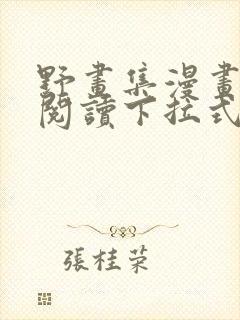 野畫集漫畫
閱讀下拉式
張桂荣